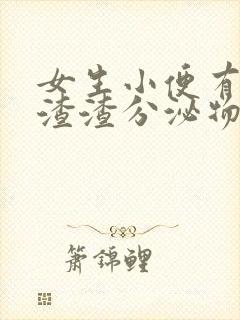 女生小便有
渣渣分泌物
箫锦鲤